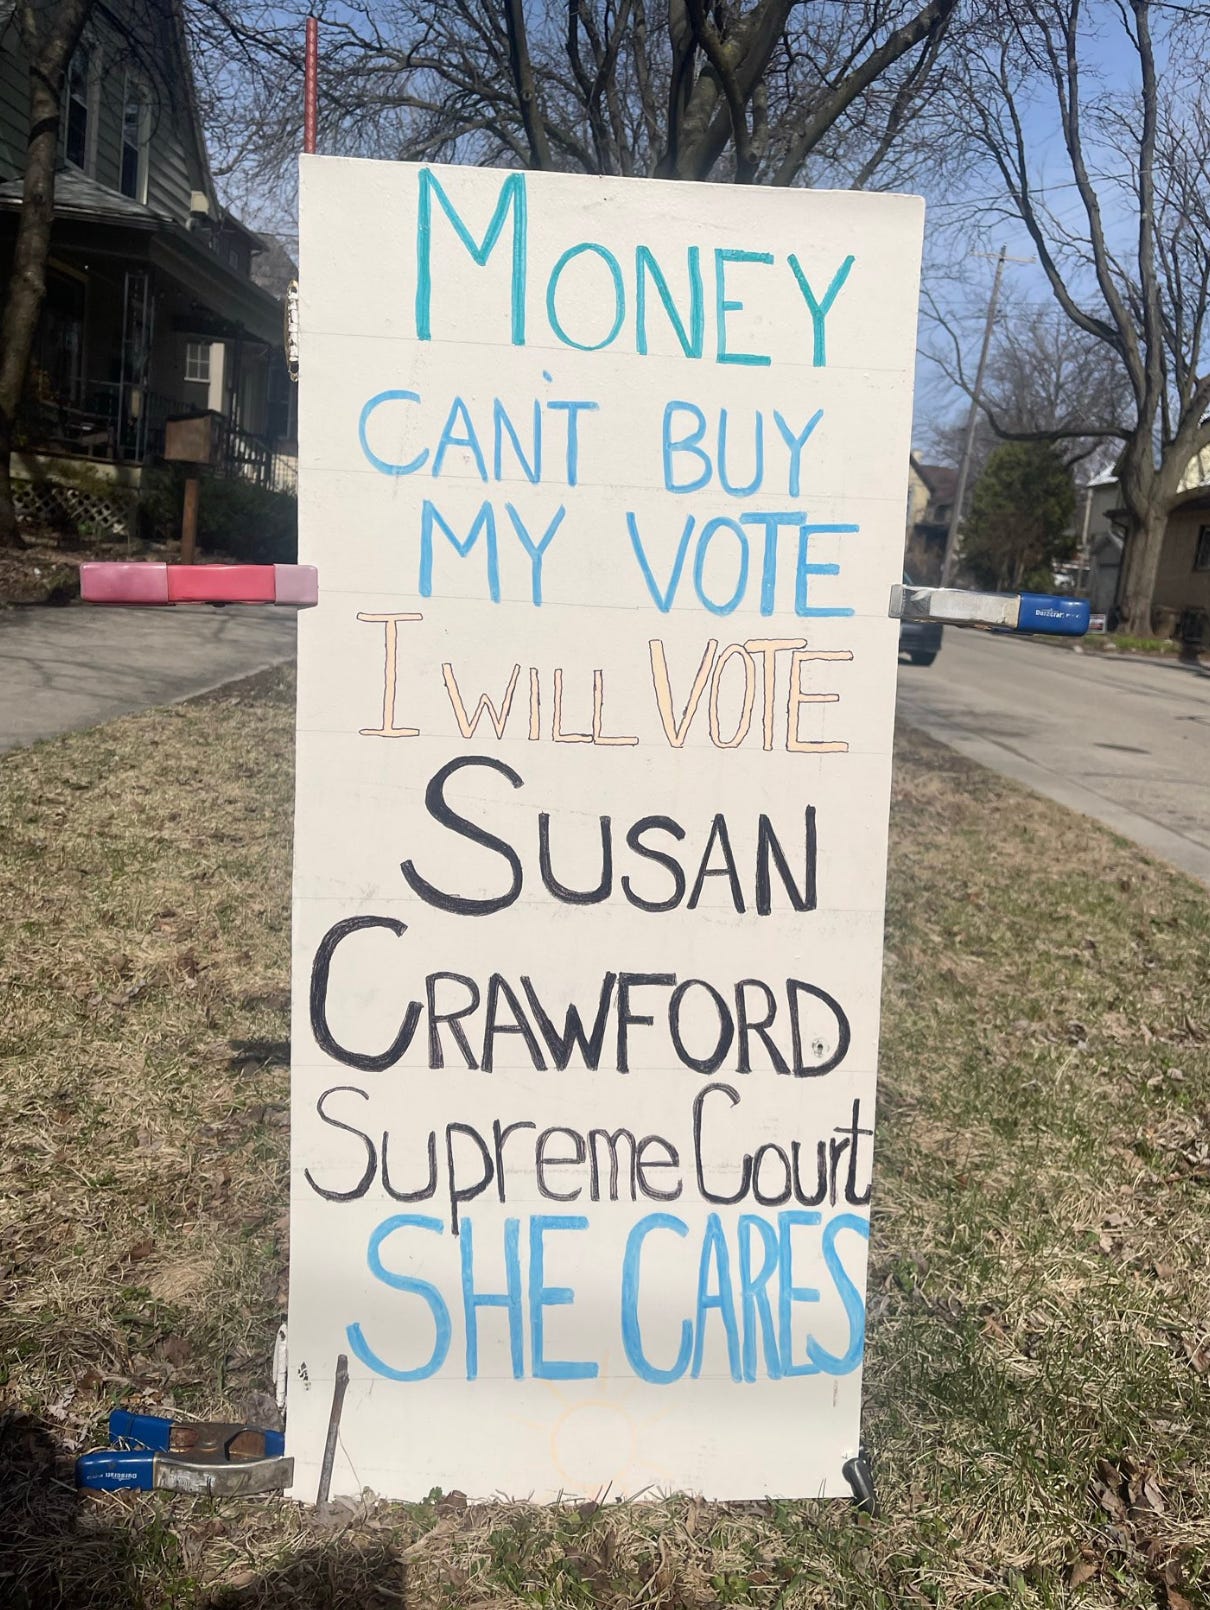 MONEY
CAN'T BUY
MY VOTE
I WILL VOTE
SUSAN
CRAWFORD
Supreme Court
SHE CARES